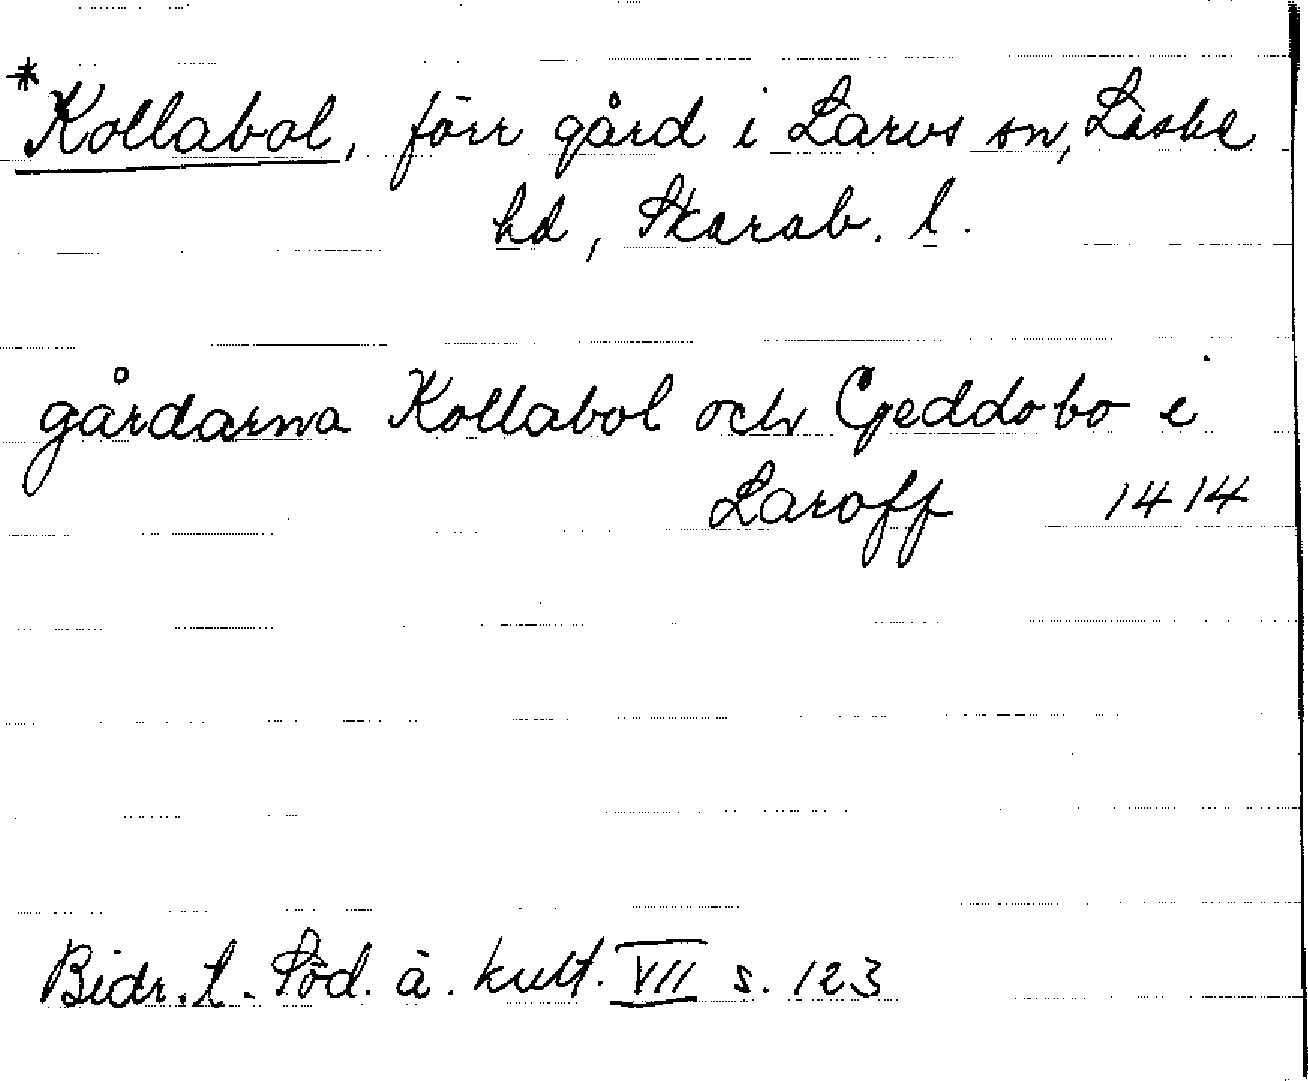 *Kollabol, förr gård i Larvs sn, Laske
hd, Skarab. l.
gårdarna Kollabol och Geddobo i
Laroff 1414
Bidr. t. Söd. ä. kult. VII s. 123